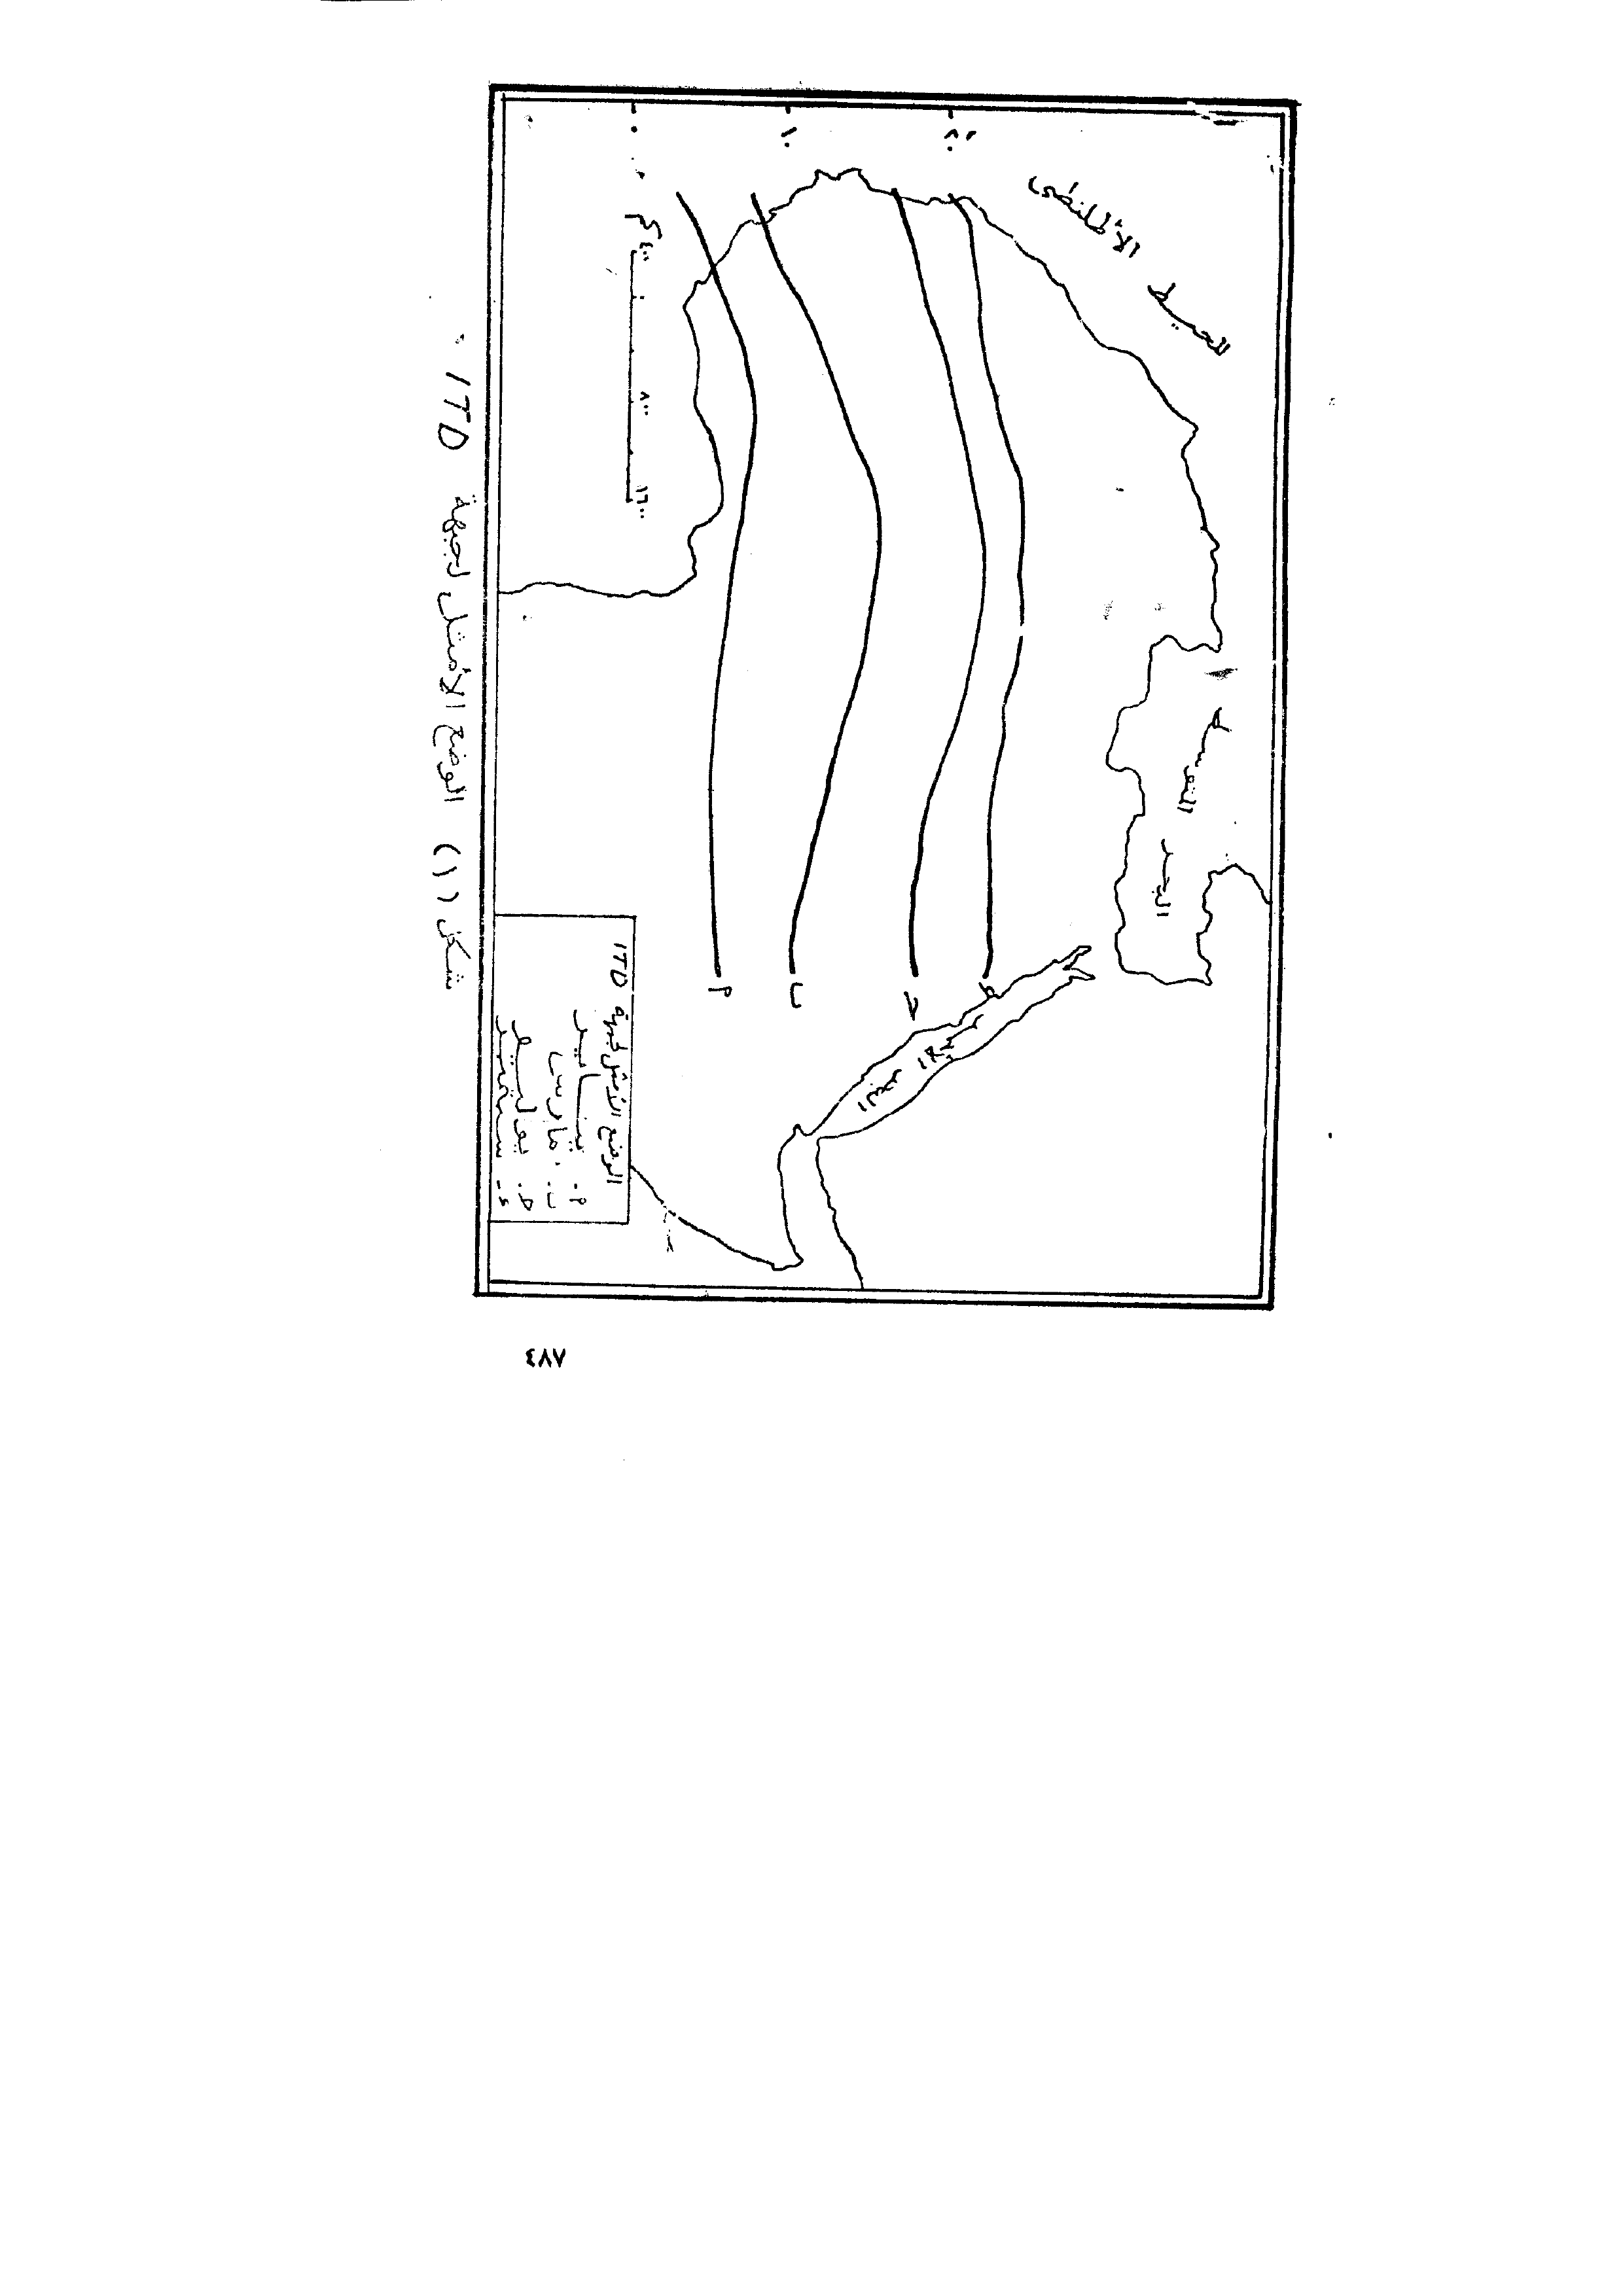 المحيط الاطلنطي
البحر المتوسط
البحر الاحمر
٢٠
١٠
٠
٤٠٠ ٠ ٨٠٠ ١٦٠٠
كم
م
ب
حـ
د
الوضع الأمثل لجبهة ITD
م - ينـــاير
ب - مارس
حـ - يوليو
د - سبتمبر
شكل (١) الوضع الأمثل لجبهة ITD
٨٧٤